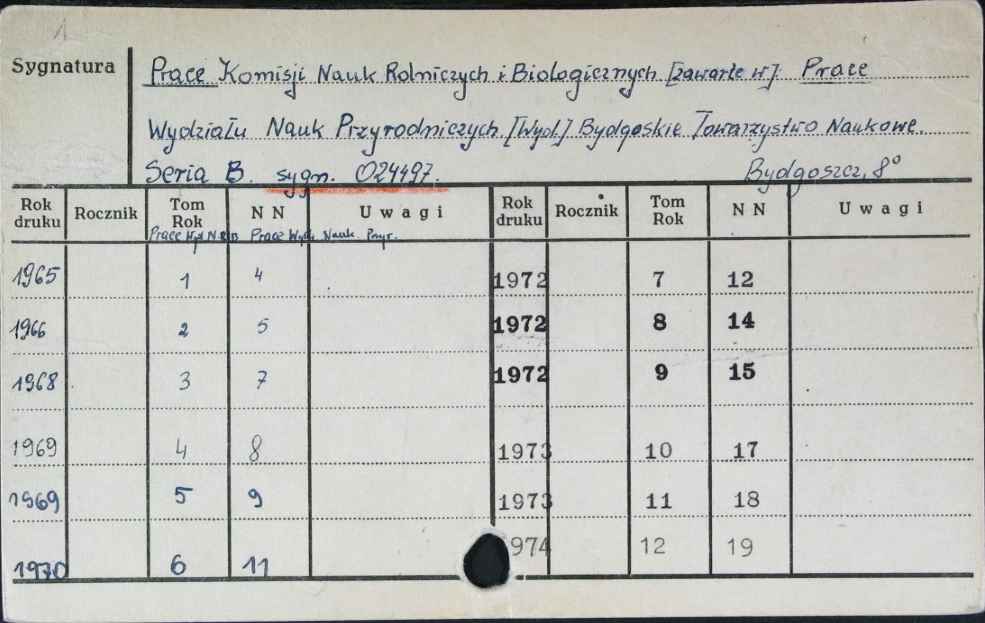 Sygnatura Prace Komisji Nauk Rolniczych i Biologicznych [zawarte w] Prace
Wydziału Nauk Przyrodniczych. [Wyd.] Bydgoskie Towarzystwo Naukowe.
Seria B. sygn. 024497. Bydgoszcz, 8°
Rok druku Rocznik Tom Rok NN Uwagi Rok druku Rocznik Tom Rok NN Uwagi
Prace Prace Wydz. Nauk Przyr.
1965 1 4 1972 7 12
1966 2 5 1972 8 14
1968 3 7 1972 9 15
1969 4 8 1973 10 17
1969 5 9 1973 11 18
1970 6 11 974 12 19